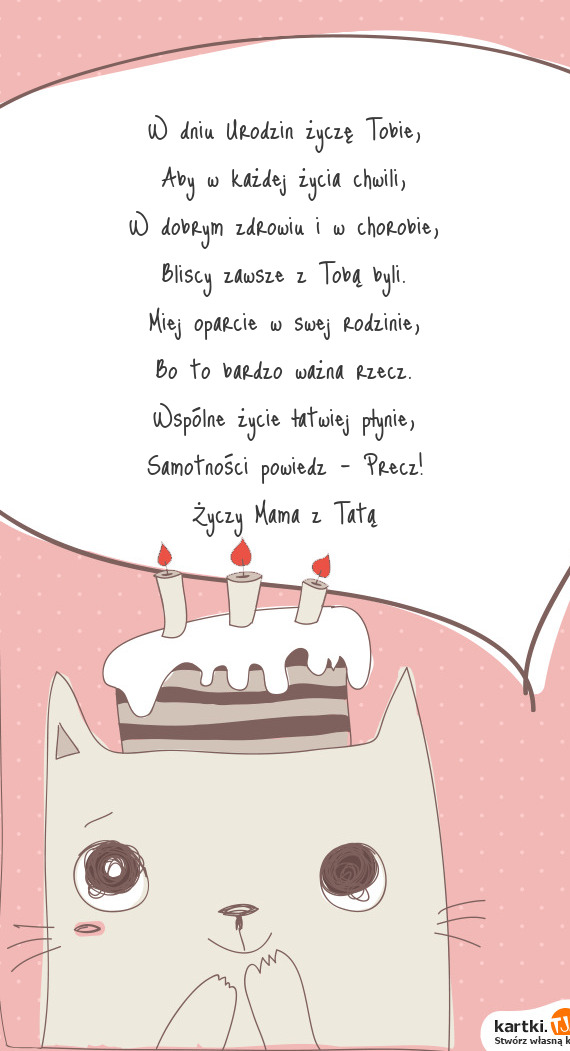 W dniu Urodzin życzę Tobie,
Aby w każdej życia chwili,
W dobrym zdrowiu i w chorobie,
Bliscy zawsze z Tobą byli.
Miej oparcie w swej rodzinie,
Bo to bardzo ważna rzecz.
Wspólne życie łatwiej płynie,
Samotności powiedz - Precz!
Życzy Mama z Tatą
kartki.TJ
Stwórz własną k